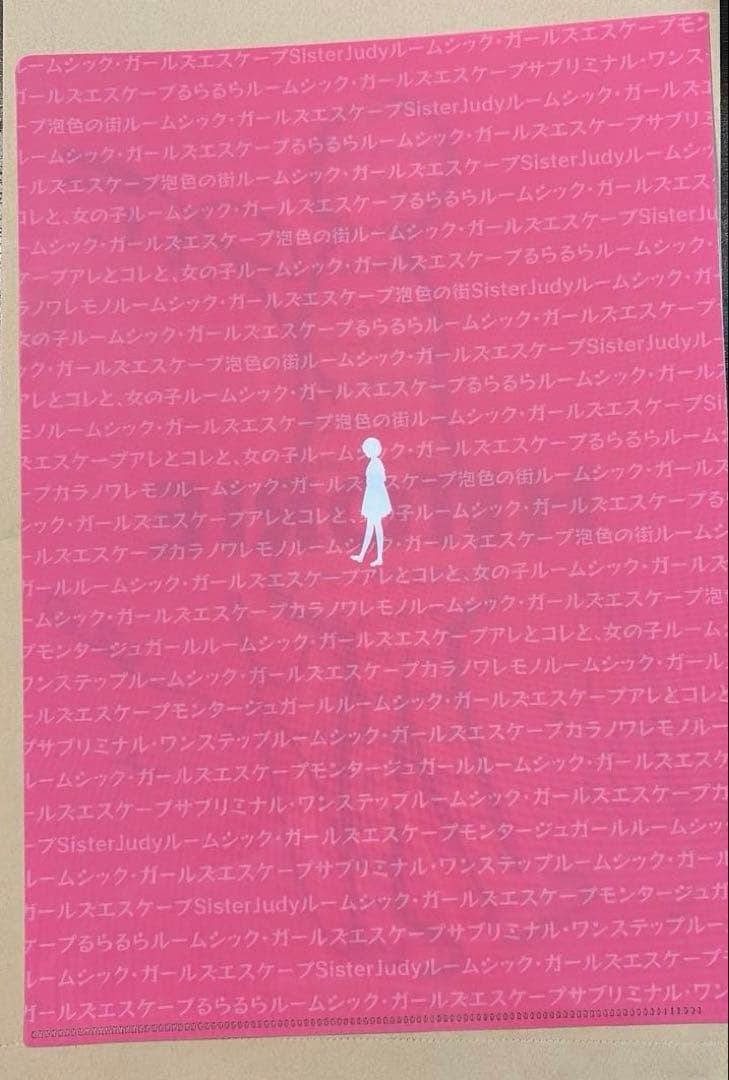 ームシック・ガールズエスケープSisterJudyルームシック・ガールズエスケープモン
ガールズエスケープるらるらルームシック・ガールズエスケープサブリミナル・ワンス
ープ泡色の街ルームシック・ガールズエスケープSisterJudyルームシック・ガールズエ
ルームシック・ガールズエスケープるらるらルームシック・ガールズエスケープサブリミ
ールズエスケープ泡色の街ルームシック・ガールズエスケープSisterJudyルームシッ
コレと、女の子ルームシック・ガールズエスケープるらるらルームシック・ガールズエス
ームシック・ガールズエスケープ泡色の街ルームシック・ガールズエスケープSisterJu
ケープアレとコレと、女の子ルームシック・ガールズエスケープるらるらルームシック・
ラノワレモノルームシック・ガールズエスケープ泡色の街SisterJudyルームシック・ガー
女の子ルームシック・ガールズエスケープるらるらルームシック・ガールズエスケープ
ック・ガールズエスケープ泡色の街ルームシック・ガールズエスケープSisterJudyルー
アレとコレと、女の子ルームシック・ガールズエスケープるらるらルームシック・ガール
モノルームシック・ガールズエスケープ泡色の街ルームシック・ガールズエスケープSi
ズエスケープアレとコレと、女の子ルームシック・ガールズエスケープるらるらルーム
ープカラノワレモノルームシック・ガールズエスケープ泡色の街ルームシック・ガールズ
シック・ガールズエスケープアレとコレと、女の子ルームシック・ガールズエスケープる
ールズエスケープカラノワレモノルームシック・ガールズエスケープ泡色の街ルームシ
ガールルームシック・ガールズエスケープアレとコレと、女の子ルームシック・ガール
ームシック・ガールズエスケープカラノワレモノルームシック・ガールズエスケープ泡
プモンタージュガールルームシック・ガールズエスケープアレとコレと、女の子ルーム
ワンステップルームシック・ガールズエスケープカラノワレモノルームシック・ガール
ールズエスケープモンタージュガールルームシック・ガールズエスケープアレとコレと
プサブリミナル・ワンステップルームシック・ガールズエスケープカラノワレモノルー
ルームシック・ガールズエスケープモンタージュガールルームシック・ガールズエスケ
ールズエスケープサブリミナル・ワンステップルームシック・ガールズエスケープカ
ープSisterJudyルームシック・ガールズエスケープモンタージュガールルームシッ
ルームシック・ガールズエスケープサブリミナル・ワンステップルームシック・ガール
ガールズエスケープSisterJudyルームシック・ガールズエスケープモンタージュガ
ケープるらるらルームシック・ガールズエスケープサブリミナル・ワンステップルー
ルームシック・ガールズエスケープSisterJudyルームシック・ガールズエスケープ
ガールズエスケープるらるらルームシック・ガールズエスケープサブリミナル・ワン